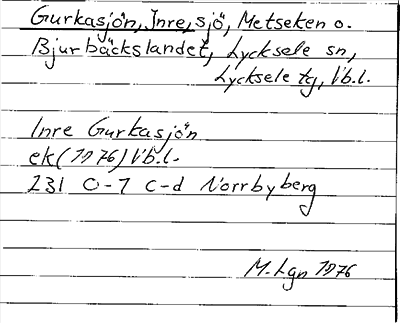 Gurkasjön, Inre, sjö, Metseken o.
Bjurbäckslandet, Lycksele sn,
Lycksele tg, Vb.l.
Inre Gurkasjön
ek (1976) Vb.l.
231 0-1 c-d Norrbyberg
M. Lgn 1976